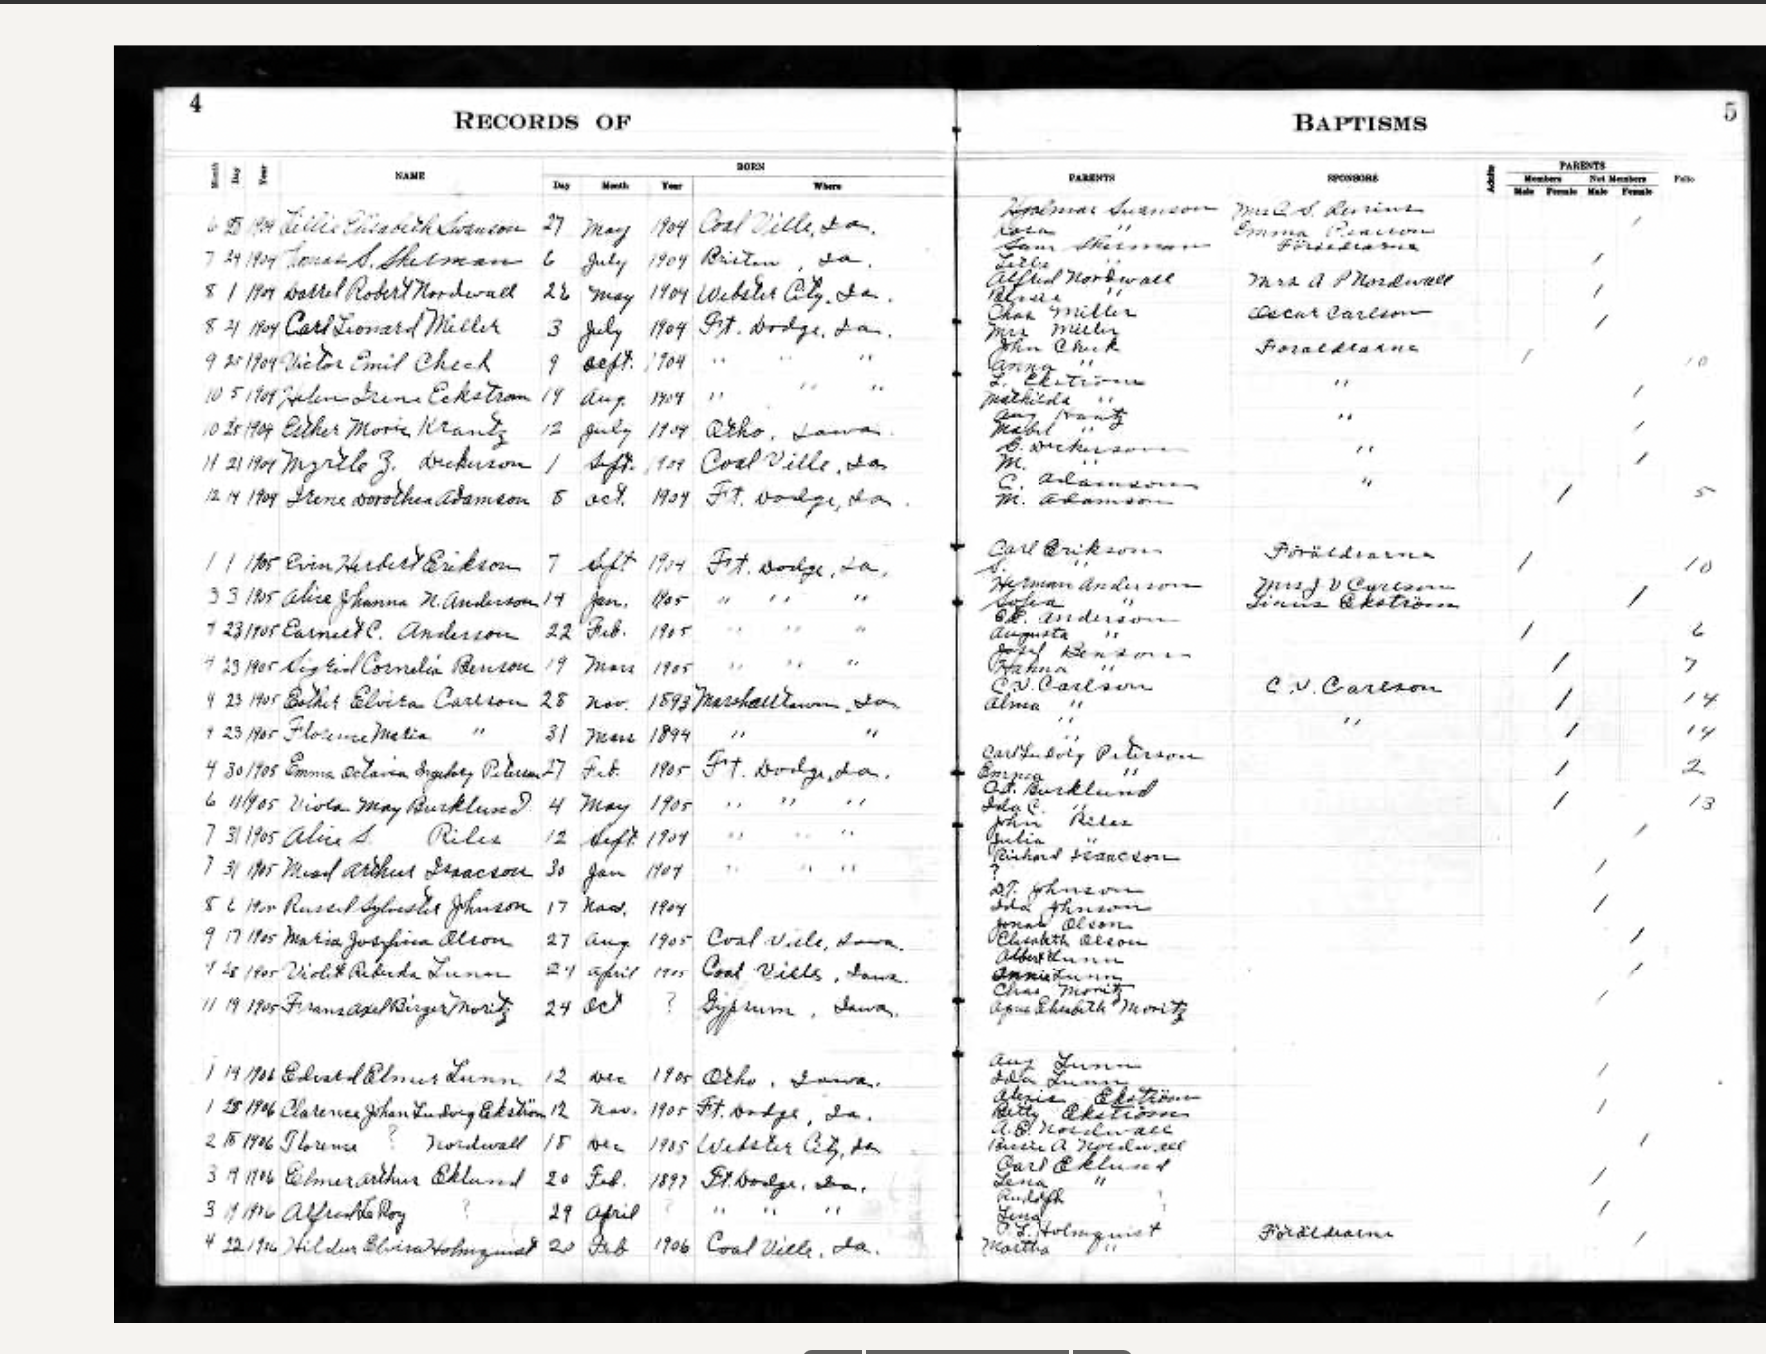 4
RECORDS OF
Month Day Year NAME BORN Day Month Year Where
6 1904 Lillie Elisabeth Swanson 27 May 1904 Coal Ville, Ia.
7 24 1904 S. Sherman 6 July 1904 , Ia.
8 1 1904 Darrel Robert Nordwall 22 May 1904 Webster City, Ia.
8 21 1904 Carl Leonard Miller 3 July 1904 Ft. Dodge, Ia.
9 25 1904 Victor Emil Check 9 Sept. 1904 " " "
10 5 1904 Helen Irene Eckstrom 19 Aug. 1904 " " "
10 25 1904 Esther Marie Krantz 12 July 1904 Otho, Iowa.
11 21 1904 Myrtle Z. Dickerson 1 Sept. 1904 Coal Ville, Ia
12 14 1904 Irene Dorothea Adamson 8 Oct. 1904 Ft. Dodge, Ia.
1 1 1905 Evin Herbert Erikson 7 Sept 1904 Ft. Dodge, Ia.
3 3 1905 Alice Jhanna N. Anderson 14 Jan. 1905 " " "
4 23 1905 Earnest C. Anderson 22 Feb. 1905 " " "
4 23 1905 Sigrid Cornelia Benson 19 Mars 1905 " " "
4 23 1905 Esther Elvira Carlson 28 Nov. 1893 Marshalltown, Ia
4 23 1905 Florence Maria " 31 Mars 1894 " "
4 30 1905 Emma Octavia Ingeborg Peterson 27 Feb. 1905 Ft. Dodge, Ia.
6 11 1905 Viola May Burklund 4 May 1905 " " "
7 31 1905 Alice S. Riles 12 Sept. 1904 " " "
7 31 1905 Arthur Isaacson 30 Jan 1904 " " "
8 6 Russel Sylvester Johnson 17 Nov. 1904
9 17 1905 Maria Josefina Olson 27 Aug 1905 Coal Ville, Iowa.
1905 Violet Lunn April 1905 Coal Ville, Iowa.
11 19 1905 Frans Axel Birger Moritz 24 Oct ? Gypsum, Iowa.
1 14 1906 Edvard Elmer Lunn 12 Dec 1905 Otho, Iowa.
1 28 1906 Clarence Johan Ludvig Ekström 12 Nov. 1905 Ft. Dodge, Ia.
2 18 1906 Florence ? Nordwall 18 Dec 1905 Webster City, Ia
3 19 1906 Elmer Arthur Eklund 20 Feb. 1897 Ft. Dodge, Ia.
3 19 1906 Alfred LeRoy ? 29 April ? " " "
4 22 1906 Hildur Elvira Holmquist 20 Feb 1906 Coal Ville, Ia.
5
BAPTISMS
PARENTS SPONSORS Adults PARENTS Members Not Members Male Female Male Female Folio
Hjalmar Swanson Mrs C. S.
" Emma Pearson
Sam Sherman Föräldrarna
"
Alfred Nordwall Mrs A P Nordwall
"
Chas Miller Oscar Carlson
Mrs Miller
John Check Foraldrarna
Anna " 10
L. Ekström "
Mathilda "
Aug Krantz "
Mabel "
G. Dickerson "
M. "
C. Adamson "
M. Adamson 5
Carl Erikson Föräldrarna
S. " 10
Herman Anderson Mrs J V Carlson
Sofia " Linus Ekström
C.E. Anderson
Augusta " 6
Josef Benson
Hanna " 7
C.V. Carlson C.V. Carlson
Alma " 14
" " 14
Carl Ludvig Peterson
Emma " 2
Burklund
Ida C. " 13
John Riles
Julia "
Richard Isaacson
?
Johnson
Ida Johnson
Jonas Olson
Elisabeth Olson
Albert Lunn
Annie Lunn
Chas Moritz
Agnes Elisabeth Moritz
Aug Lunn
Ida Lunn
Alexis Ekström
Betty Ekström
A.E. Nordwall
A. Nordwall
Carl Eklund
Lena "
Rudolph ?
Lena
P.L. Holmquist Föräldrarna
Martha "